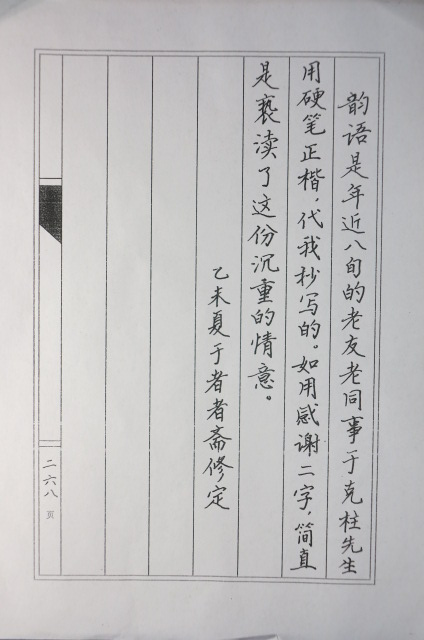 韵语是年近八旬的老友老同事于克柱先生
用硬笔正楷，代我抄写的。如用感谢二字，简直
是亵渎了这份沉重的情意。
乙未夏于者者斋修定
二六八页